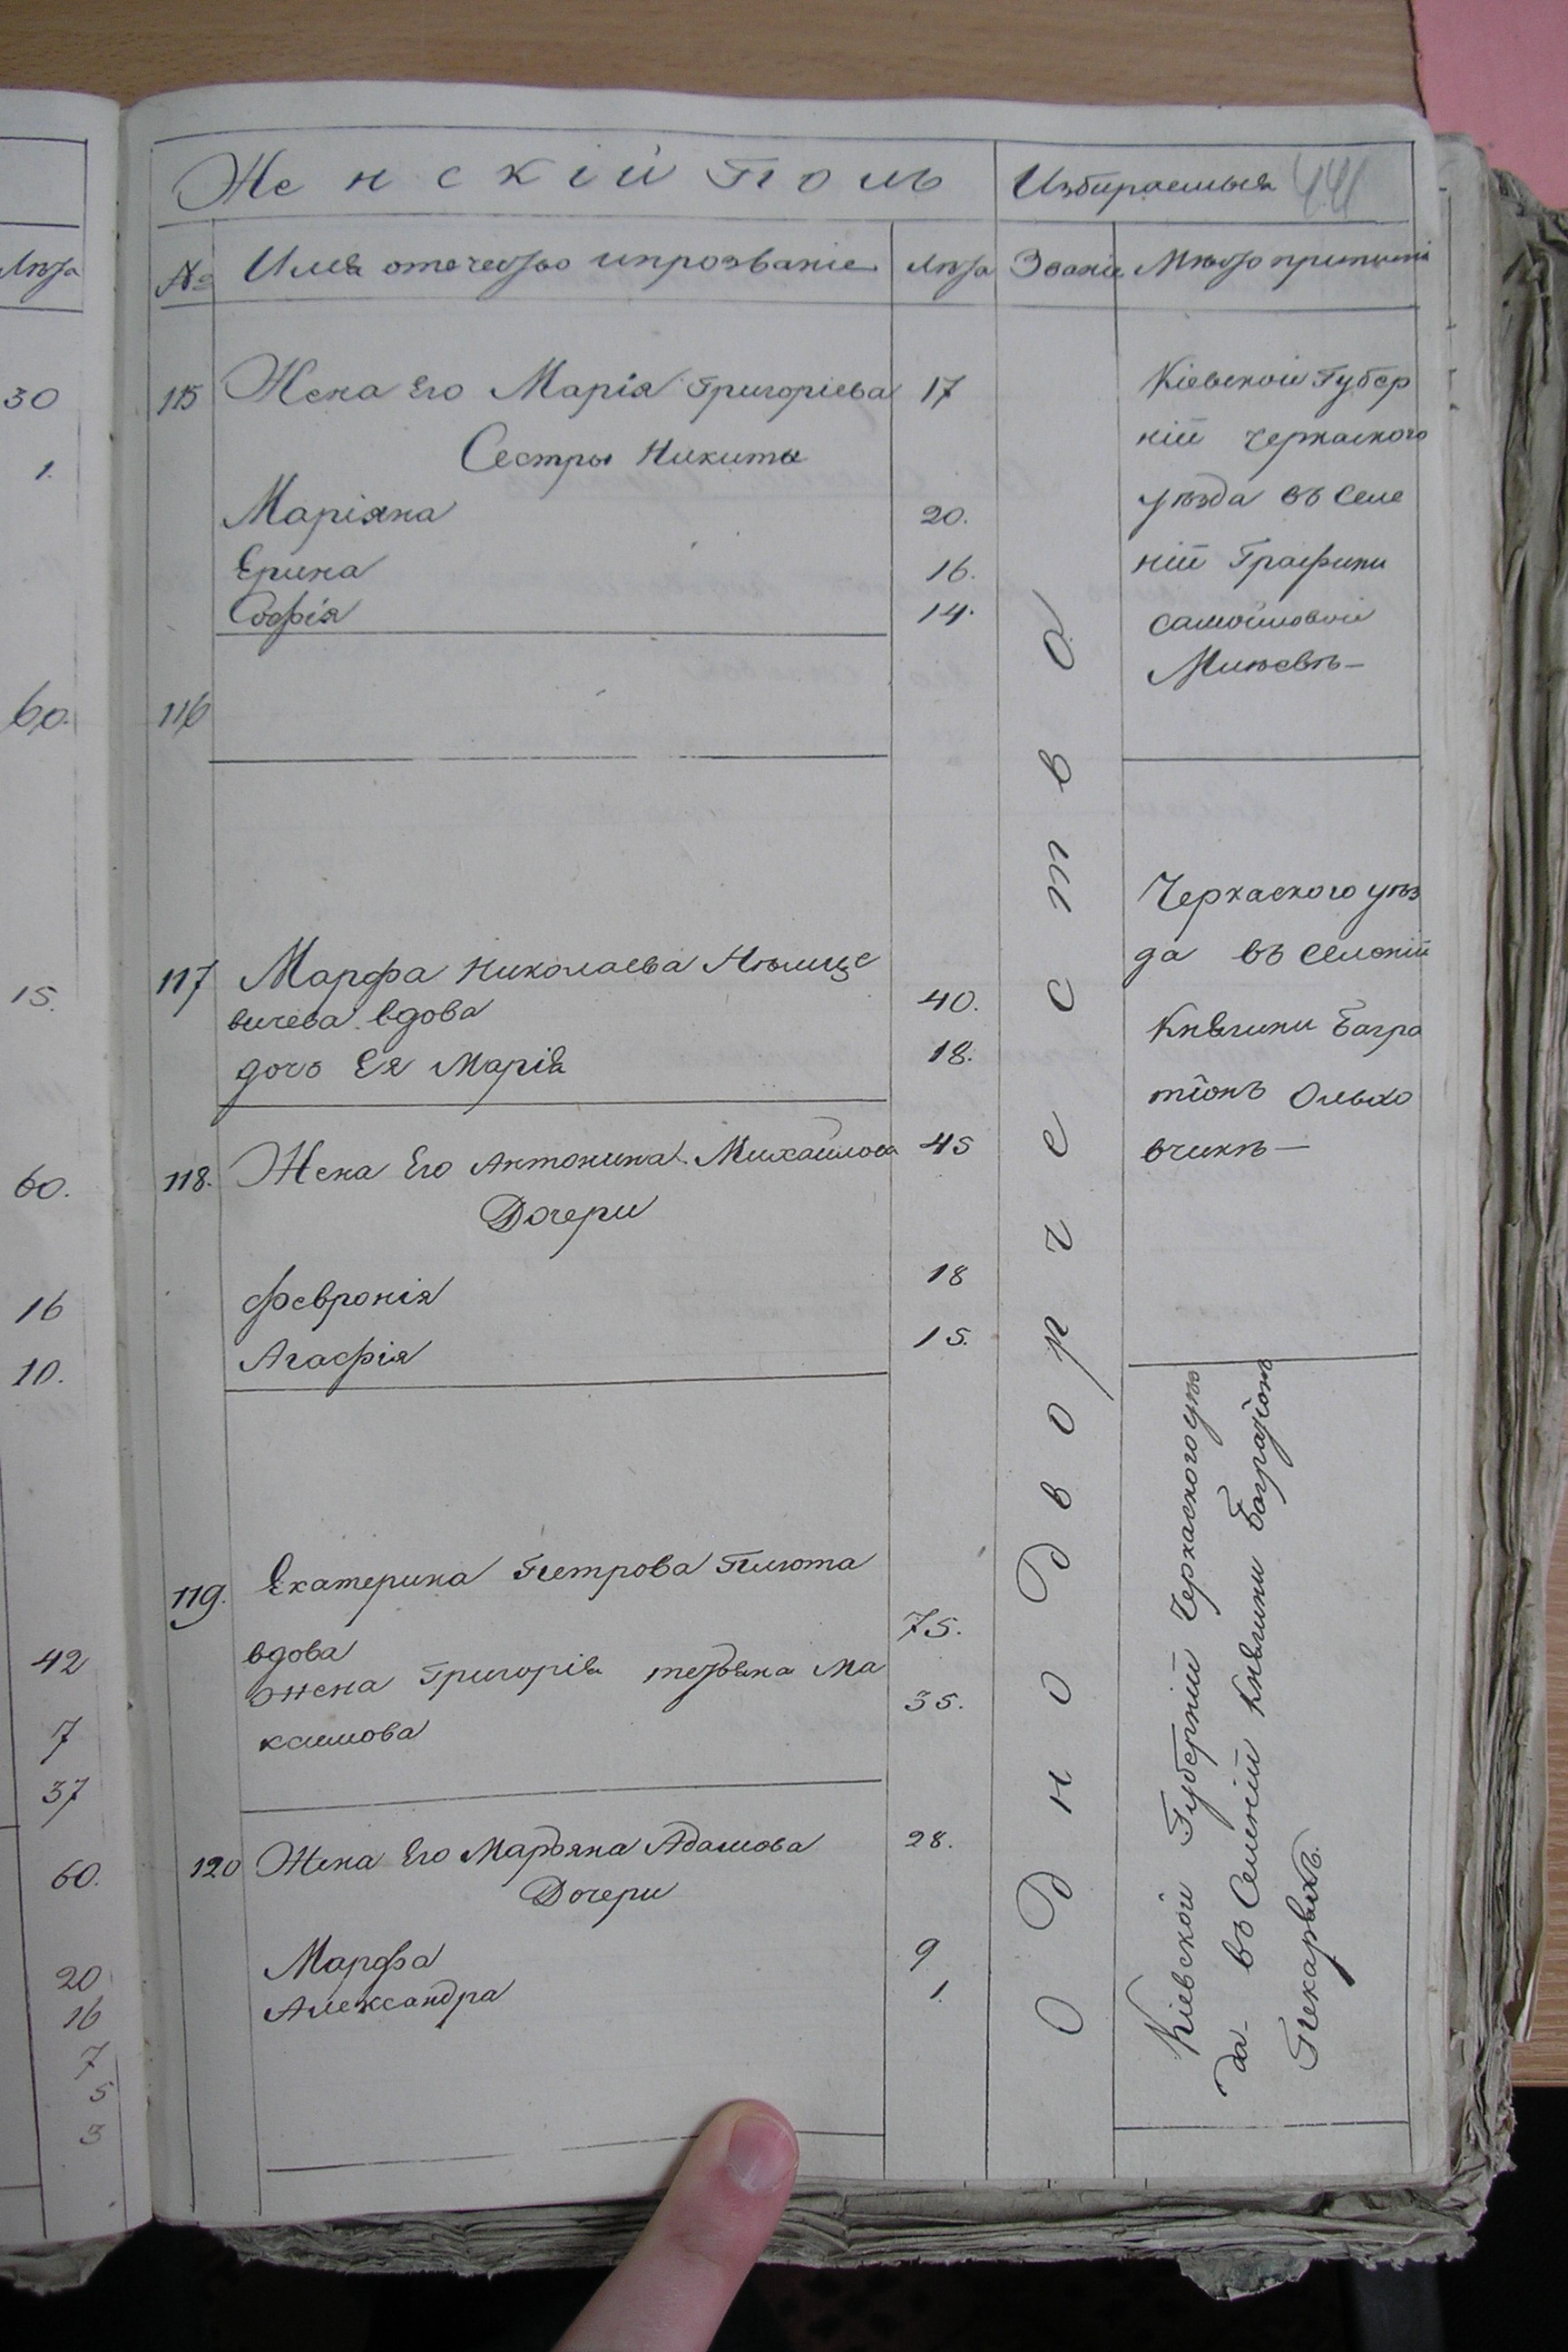 Лѣта
30
1.
60.
15.
60.
16
10.
42
7
37
60.
20
16
7
5
3
Женскій Полъ
Избираемыя
441
№
Имя отечество ипрозваніе
Лѣта
Званіе
Мѣсто приписки
115 Жена Его Марія Григоріева 17
Сестры Никиты
Маріяна 20.
Ерина 16.
Софія 14.
116
117 Марфа Николаева
вичева вдова 40.
дочь Ея Марія 18.
118. Жена Его Антонина Михайлова 45
Дочери
Февронія 18
Агафія 15.
119. Екатерина Петрова Пилюта
вдова 75.
жена Григорія Ма 35.
каимова
120 Жена Его Марьяна Адамова 28.
Дочери
Марфа 9
Александра 1.
Однодворчество
Кіевской Губер
ніи Черкаского
уѣзда въ Селе
ніи Графини
Самойловой
Черкаского уѣз
да въ Селеніи
Княгини Багра
тіонъ Ольхо
вчикѣ—
Кіевской Губерніи Черкаского уѣз
да въ Селеніи Княгини Багратіонъ
Пекаряхъ.